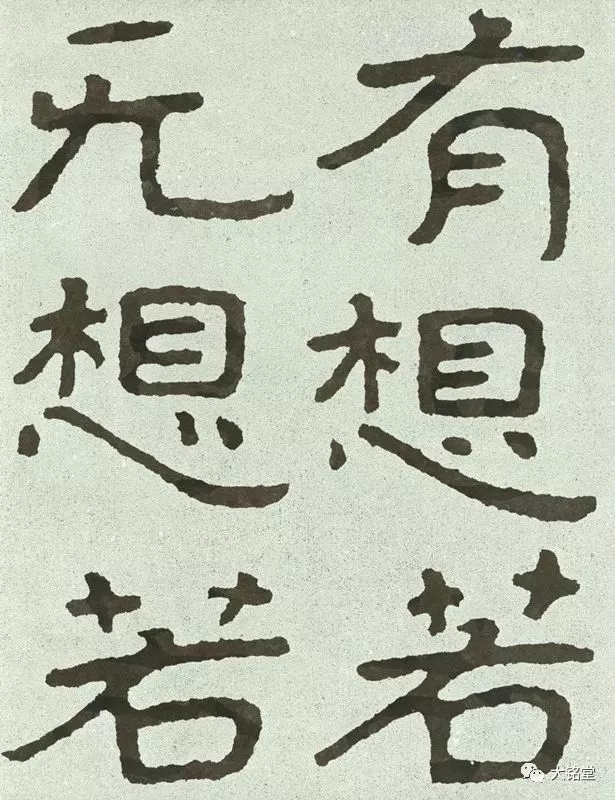 有想若
无想若
大铭堂